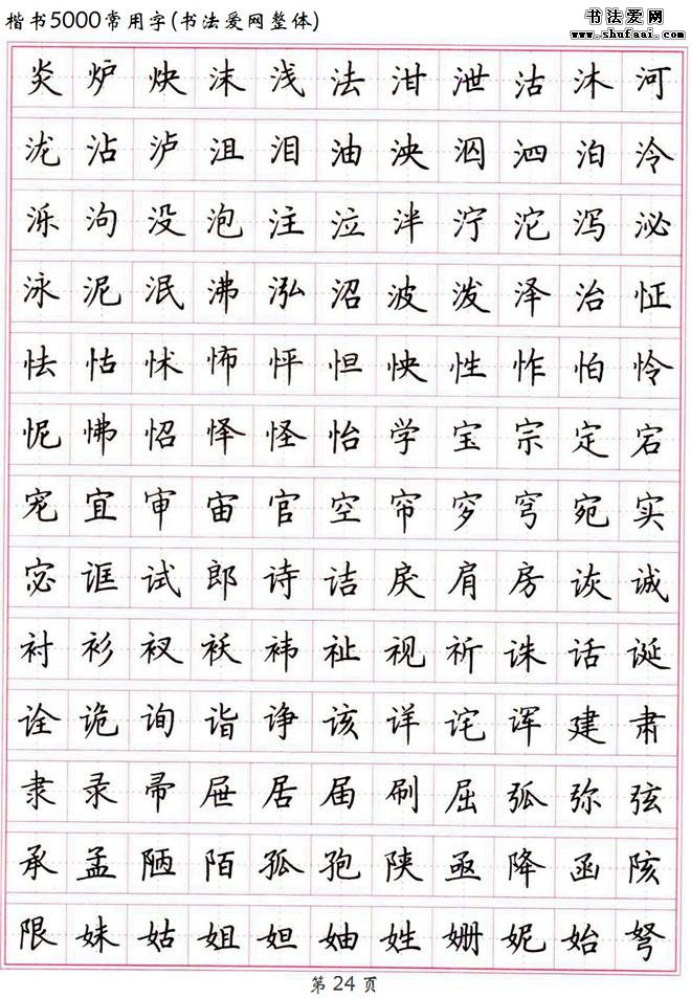 楷书5000常用字(书法爱网整体)
书法爱网
www.shufaai.com
炎炉炔沫浅法泔泄沽沐河
泷沾泸沮泪油泱泅泗泊泠
泺泃没泡注泣泮泞沱泻泌
泳泥泯沸泓沼波泼泽治怔
怯怙怵怖怦怛怏性怍怕怜
怩怫怊怿怪怡学宝宗定宕
宠宜审宙官空帘穸穹宛实
宓诓试郎诗诘戾肩房诙诚
衬衫衩袄袆祉视祈诛话诞
诠诡询诣诤该详诧诨建肃
隶录帚屉居届刷屈弧弥弦
承孟陋陌孤孢陕亟降函陔
限妹姑姐妲妯姓姗妮始弩
第24页